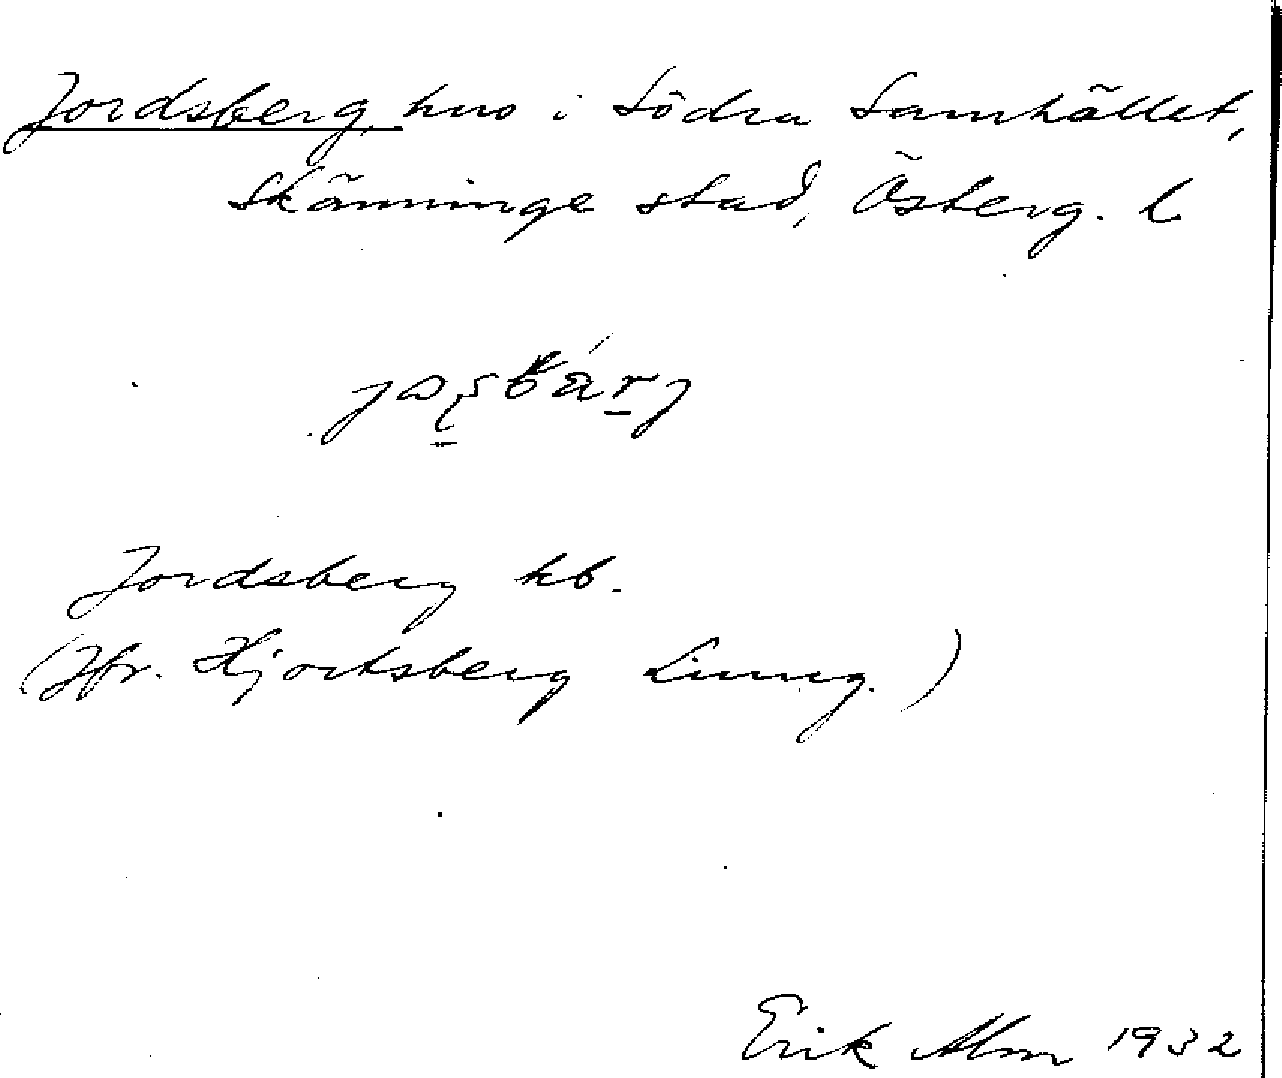 Jordsberg, hus i Södra Samhället,
Skänninge stad, Österg. l
Jordsberg kb.
(Jfr. Hjortsberg Ljung.)
Erik Alm 1932